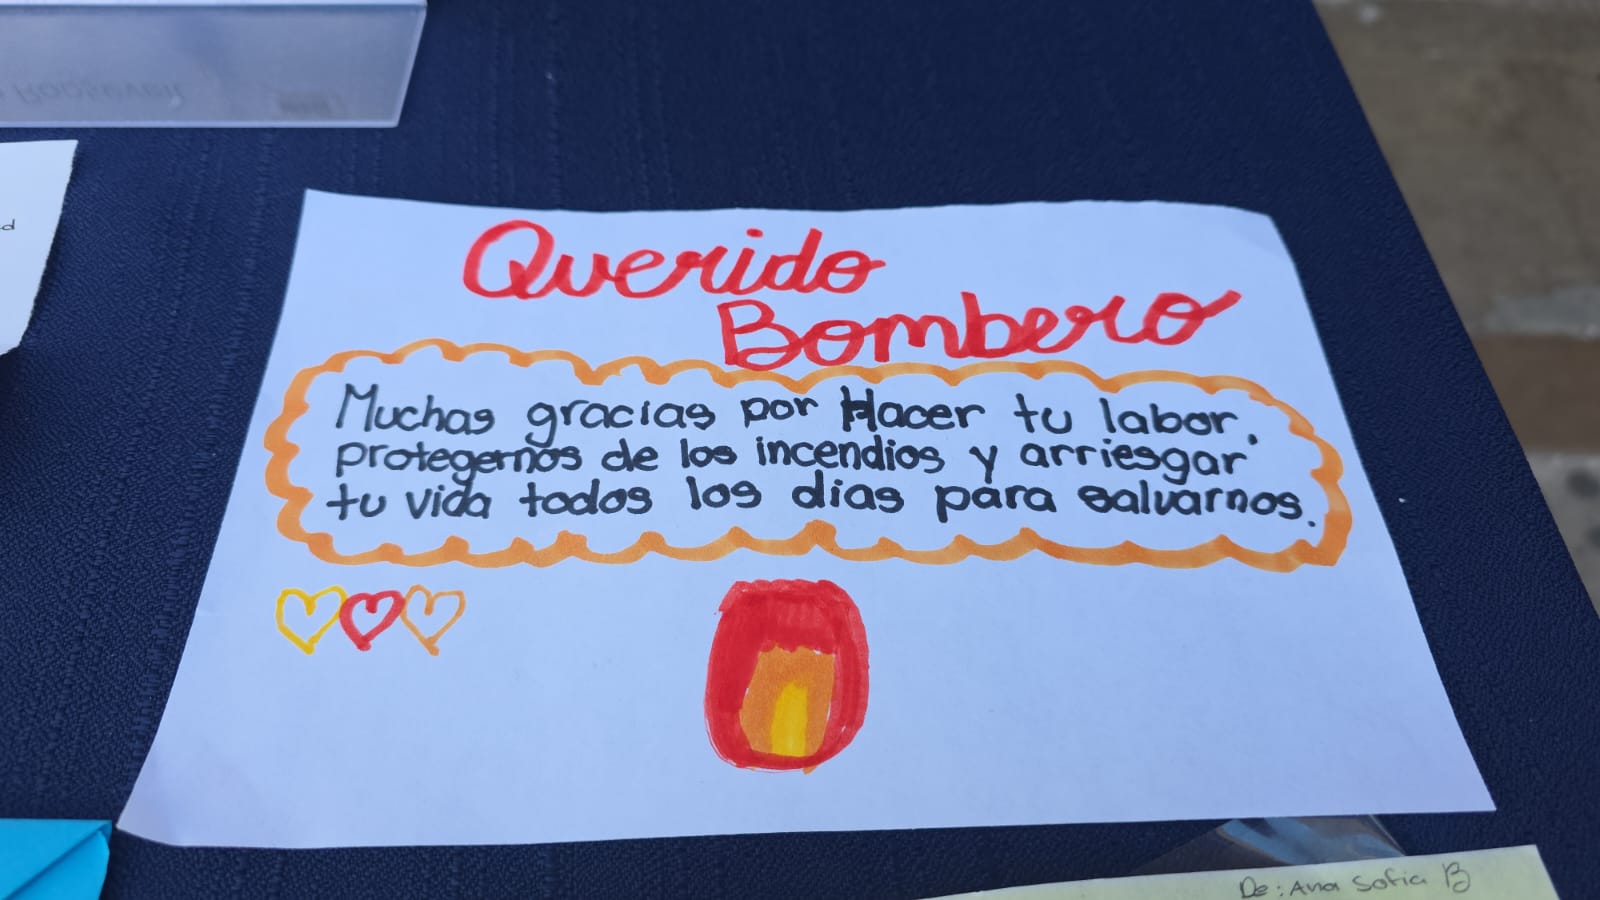 Querido
Bombero
Muchas gracias por Hacer tu labor,
protegernos de los incendios y arriesgar
tu vida todos los dias para salvarnos.
De: Ana Sofia B